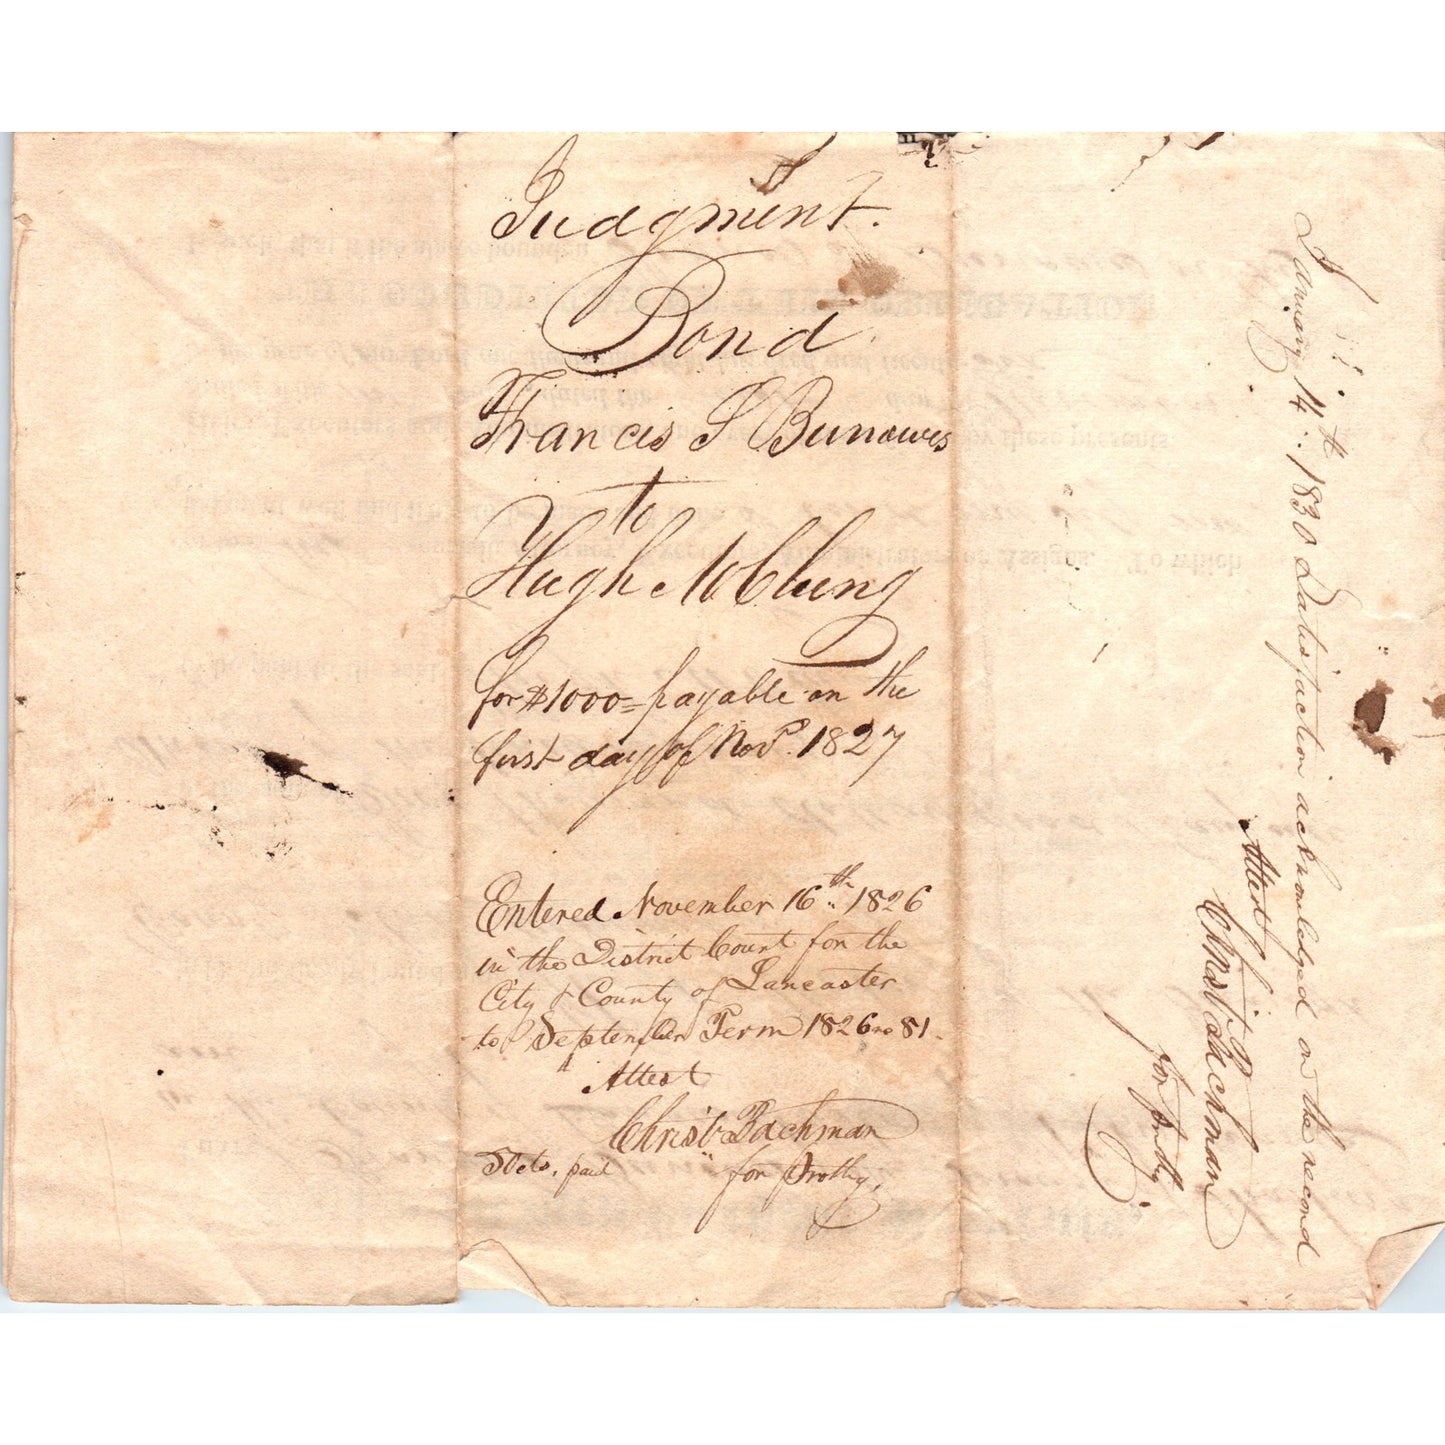 Judgment.
Bond
Francis S Burrowes
to
Hugh McClung
for $1000= payable on the
first day of Novr. 1827
Entered November 16th 1826
in the District Court for the
City & County of Lancaster
to September Term 1826 no 81.
Attest
Christ Bachman
for Prothy.
50cts. paid
January 14th 1830 Satisfaction acknowledged on the record
Attest
Christ Bachman
for Prothy